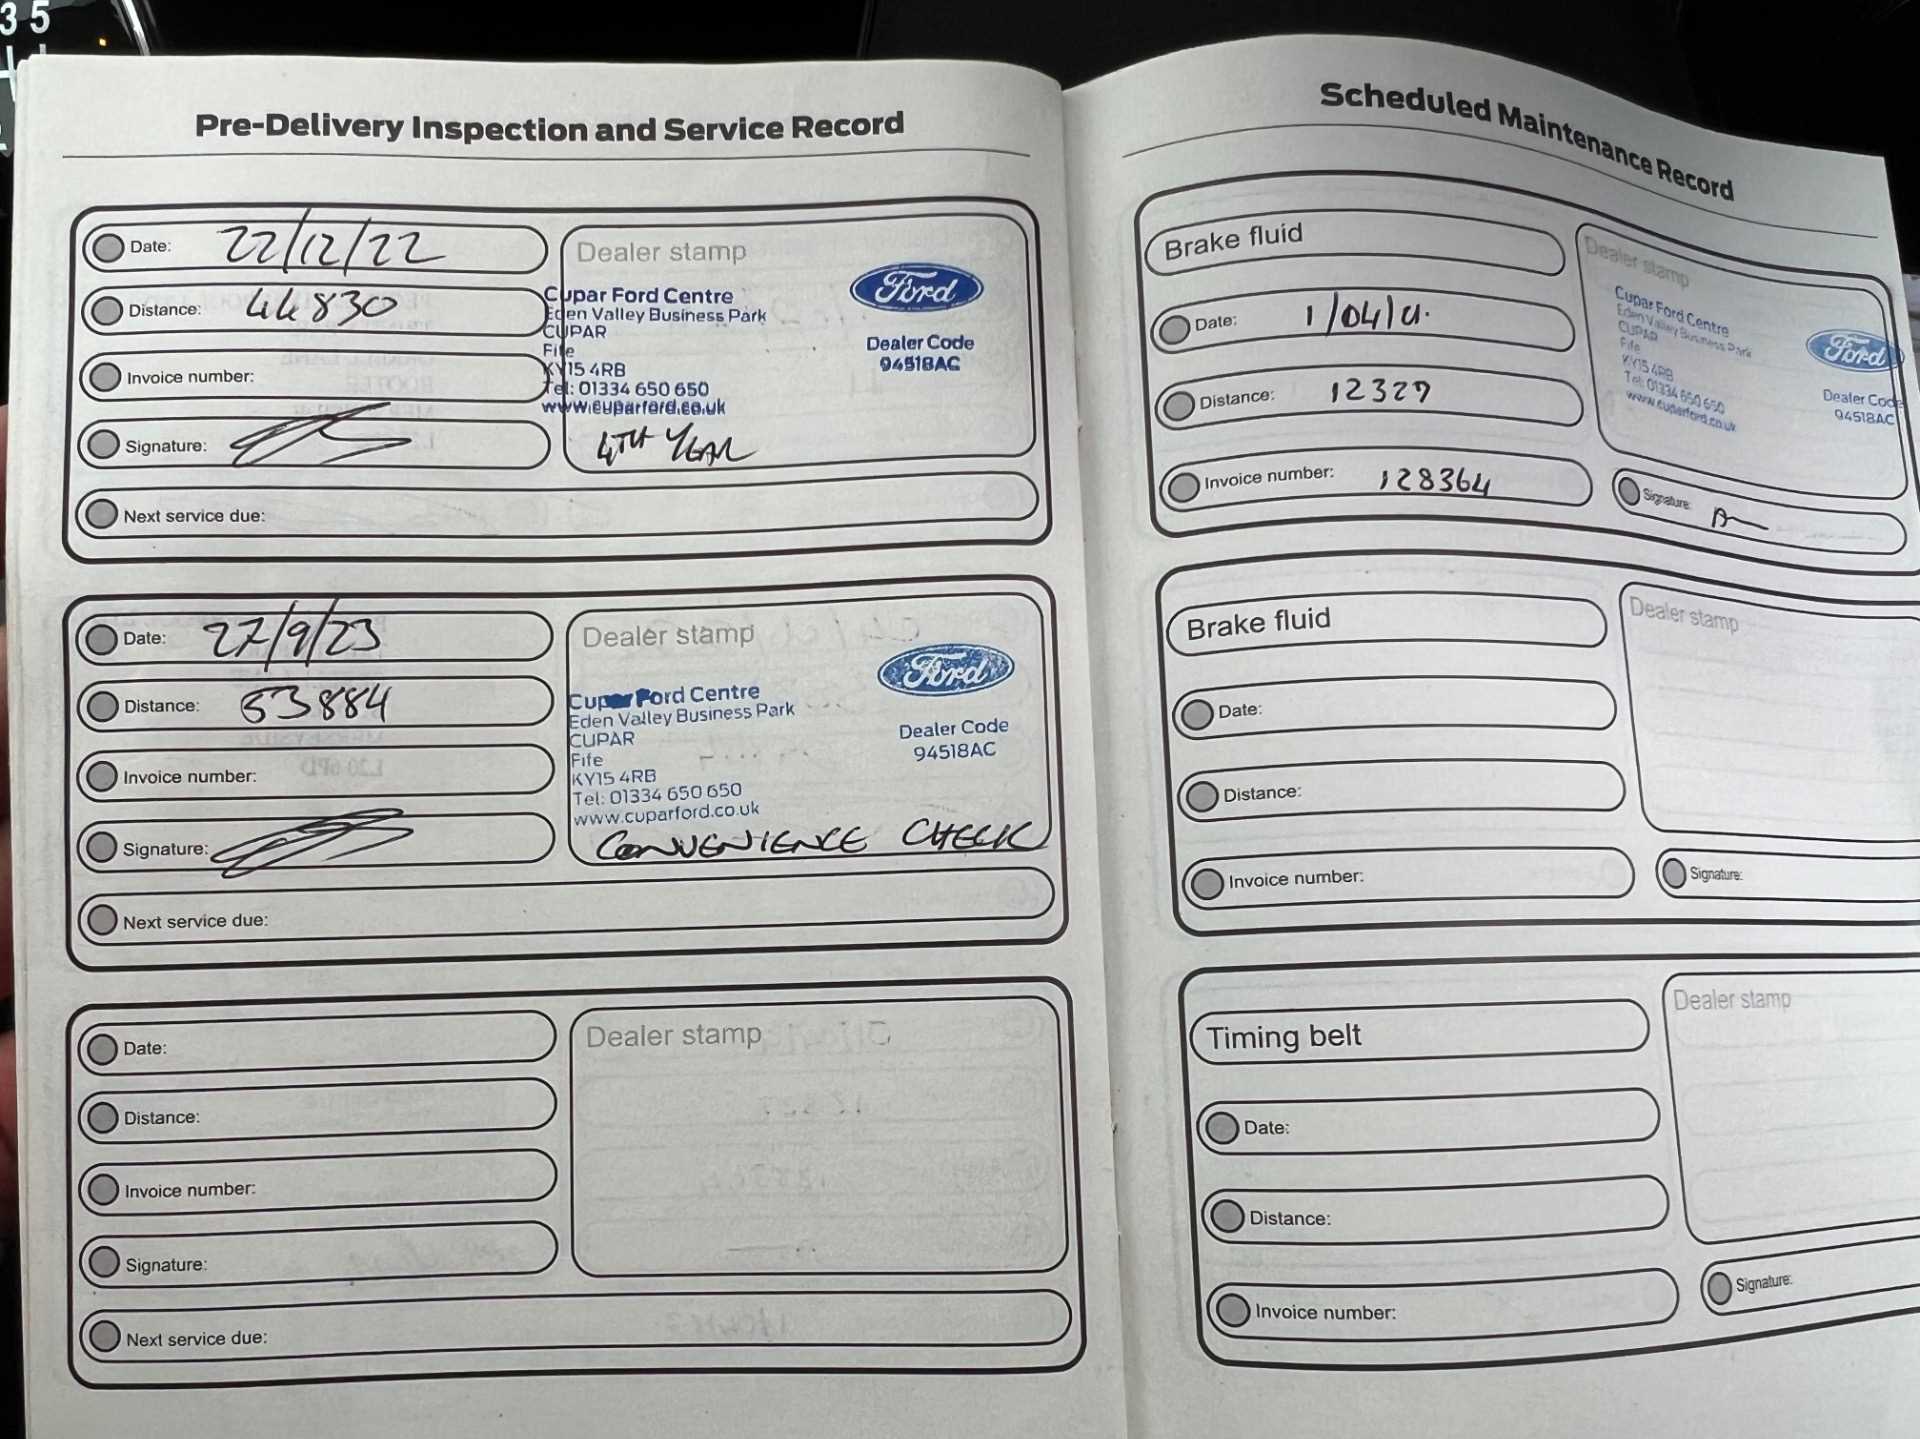 35
Pre-Delivery Inspection and Service Record
Date: 22/12/22
Distance: 44830
Invoice number:
Signature:
Next service due:
Dealer stamp
Cupar Ford Centre
Eden Valley Business Park
CUPAR
Fife
KY15 4RB
Tel: 01334 650 650
www.cuparford.co.uk
Ford
Dealer Code
94518AC
4TH YEAR
Date: 27/9/23
Distance: 53884
Invoice number:
Signature:
Next service due:
Dealer stamp
Cupar Ford Centre
Eden Valley Business Park
CUPAR
Fife
KY15 4RB
Tel: 01334 650 650
www.cuparford.co.uk
Ford
Dealer Code
94518AC
CONVENIENCE CHECK
Date:
Distance:
Invoice number:
Signature:
Next service due:
Dealer stamp
Scheduled Maintenance Record
Brake fluid
Date: 1/04/
Distance: 12327
Invoice number: 128364
Dealer stamp
Cupar Ford Centre
Eden Valley Business Park
CUPAR
Fife
KY15 4RB
Tel: 01334 650 650
www.cuparford.co.uk
Ford
Dealer Code
94518AC
Signature:
Brake fluid
Date:
Distance:
Invoice number:
Dealer stamp
Signature:
Timing belt
Date:
Distance:
Invoice number:
Dealer stamp
Signature: